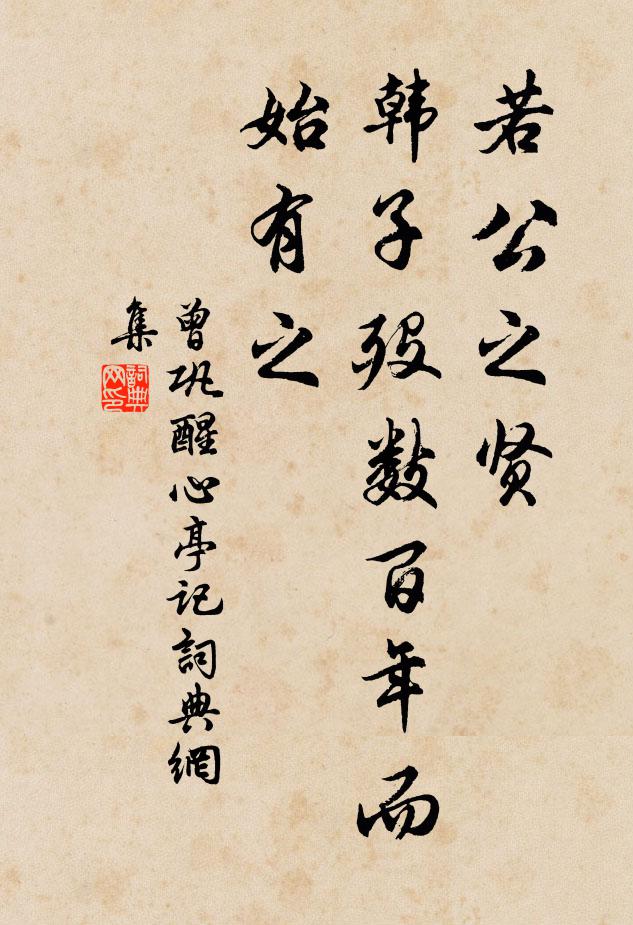 若公之贤
韩子殁数百年而
始有之
曾巩醒心亭记词典網
集
詞典
网印